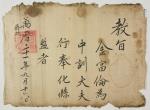 教旨
金富倫爲
中訓大夫
行奉化縣
監者
萬曆十三年九月十一日